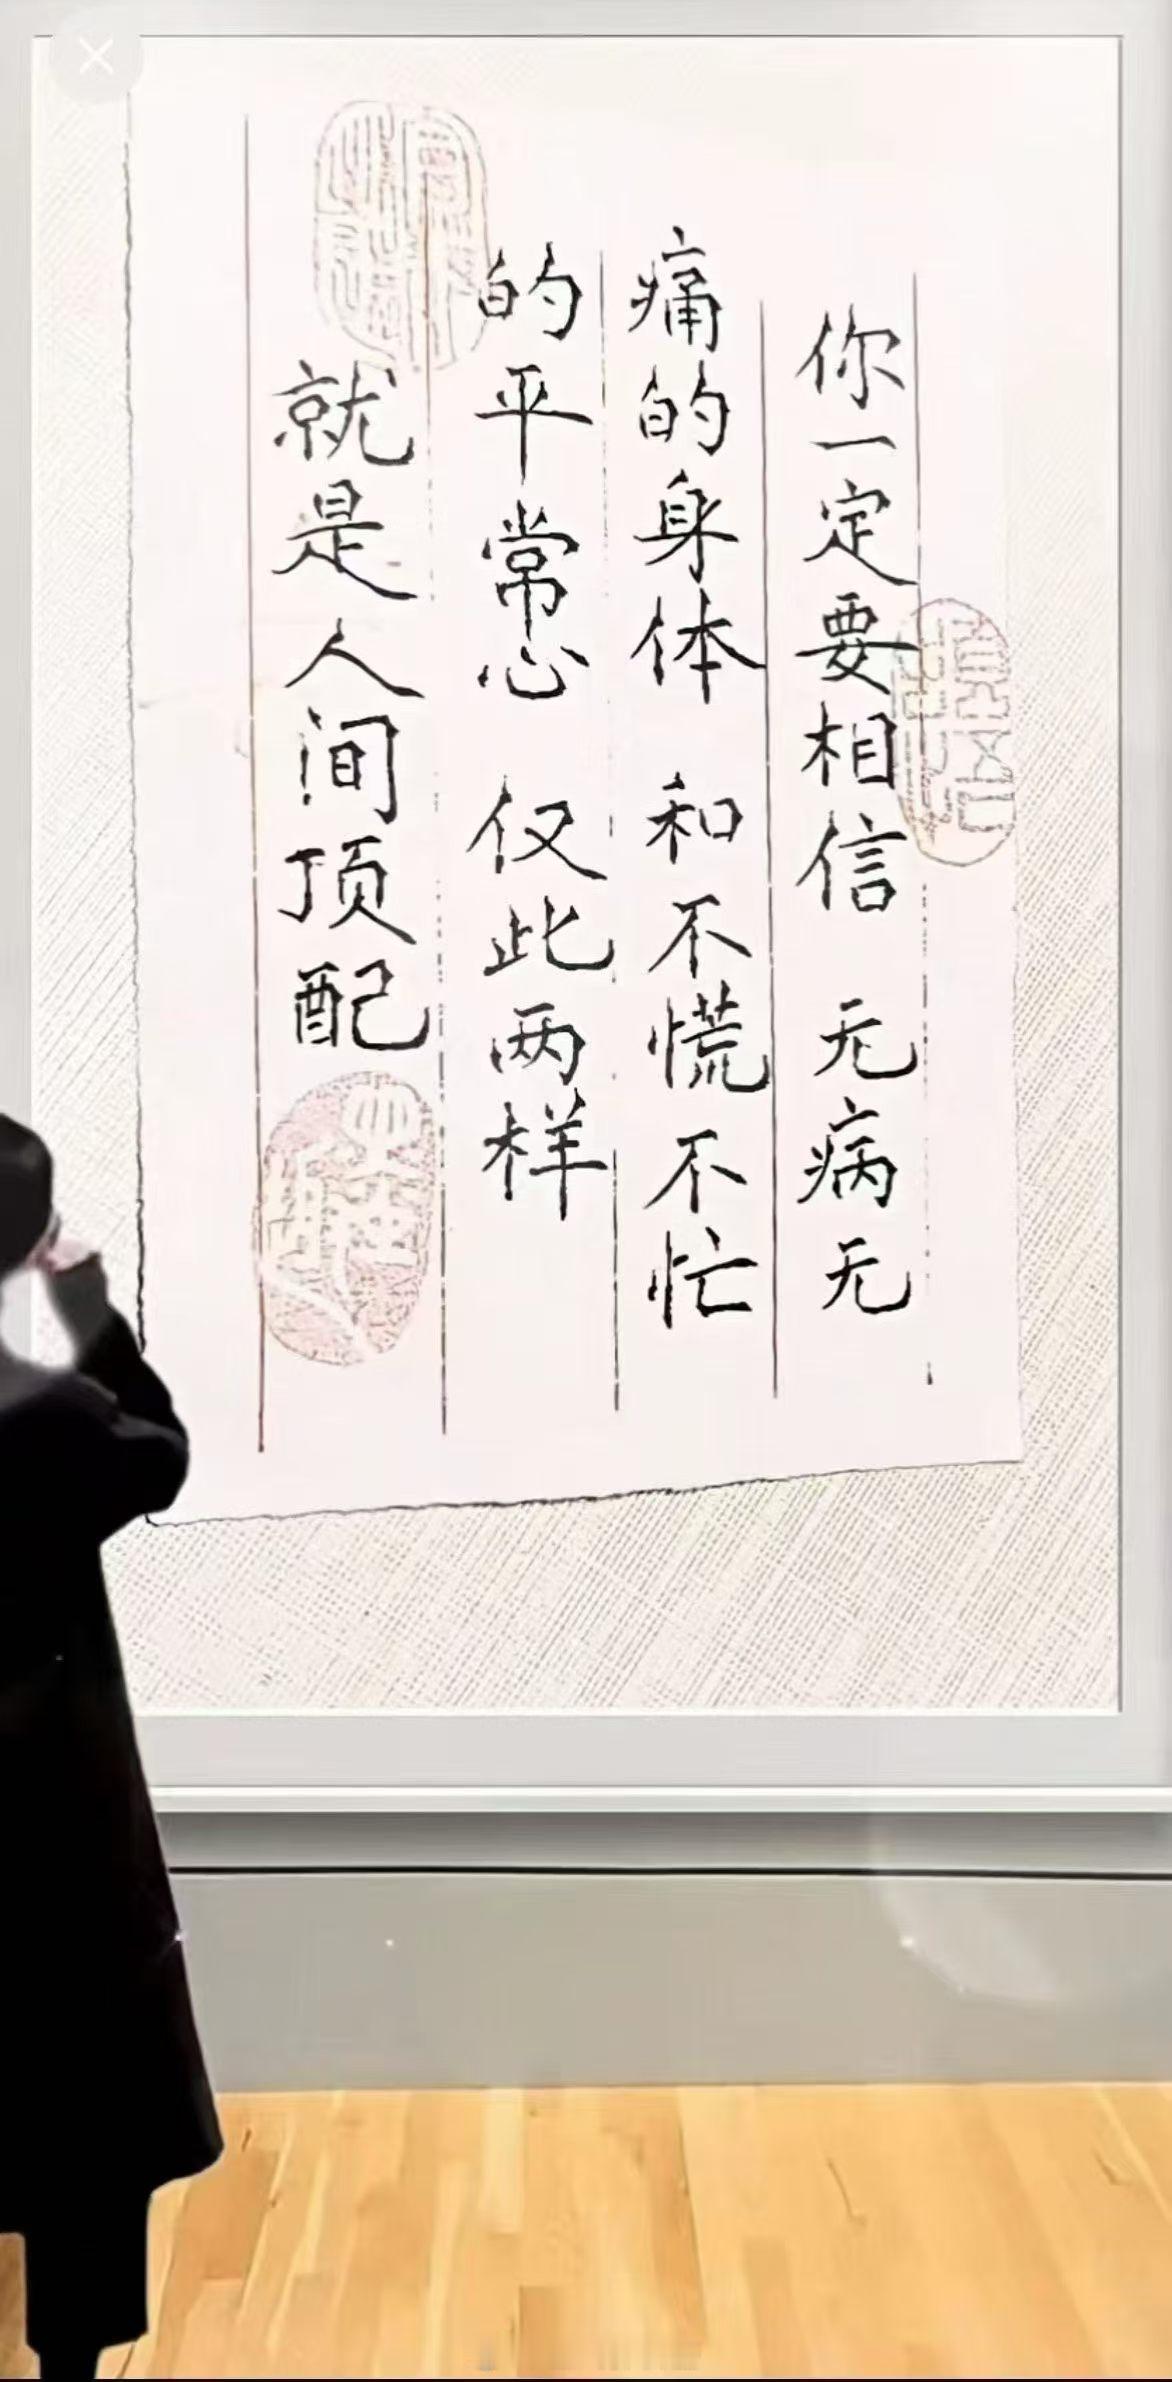 你一定要相信 无病无
痛的身体 和不慌不忙
的平常心 仅此两样
就是人间顶配